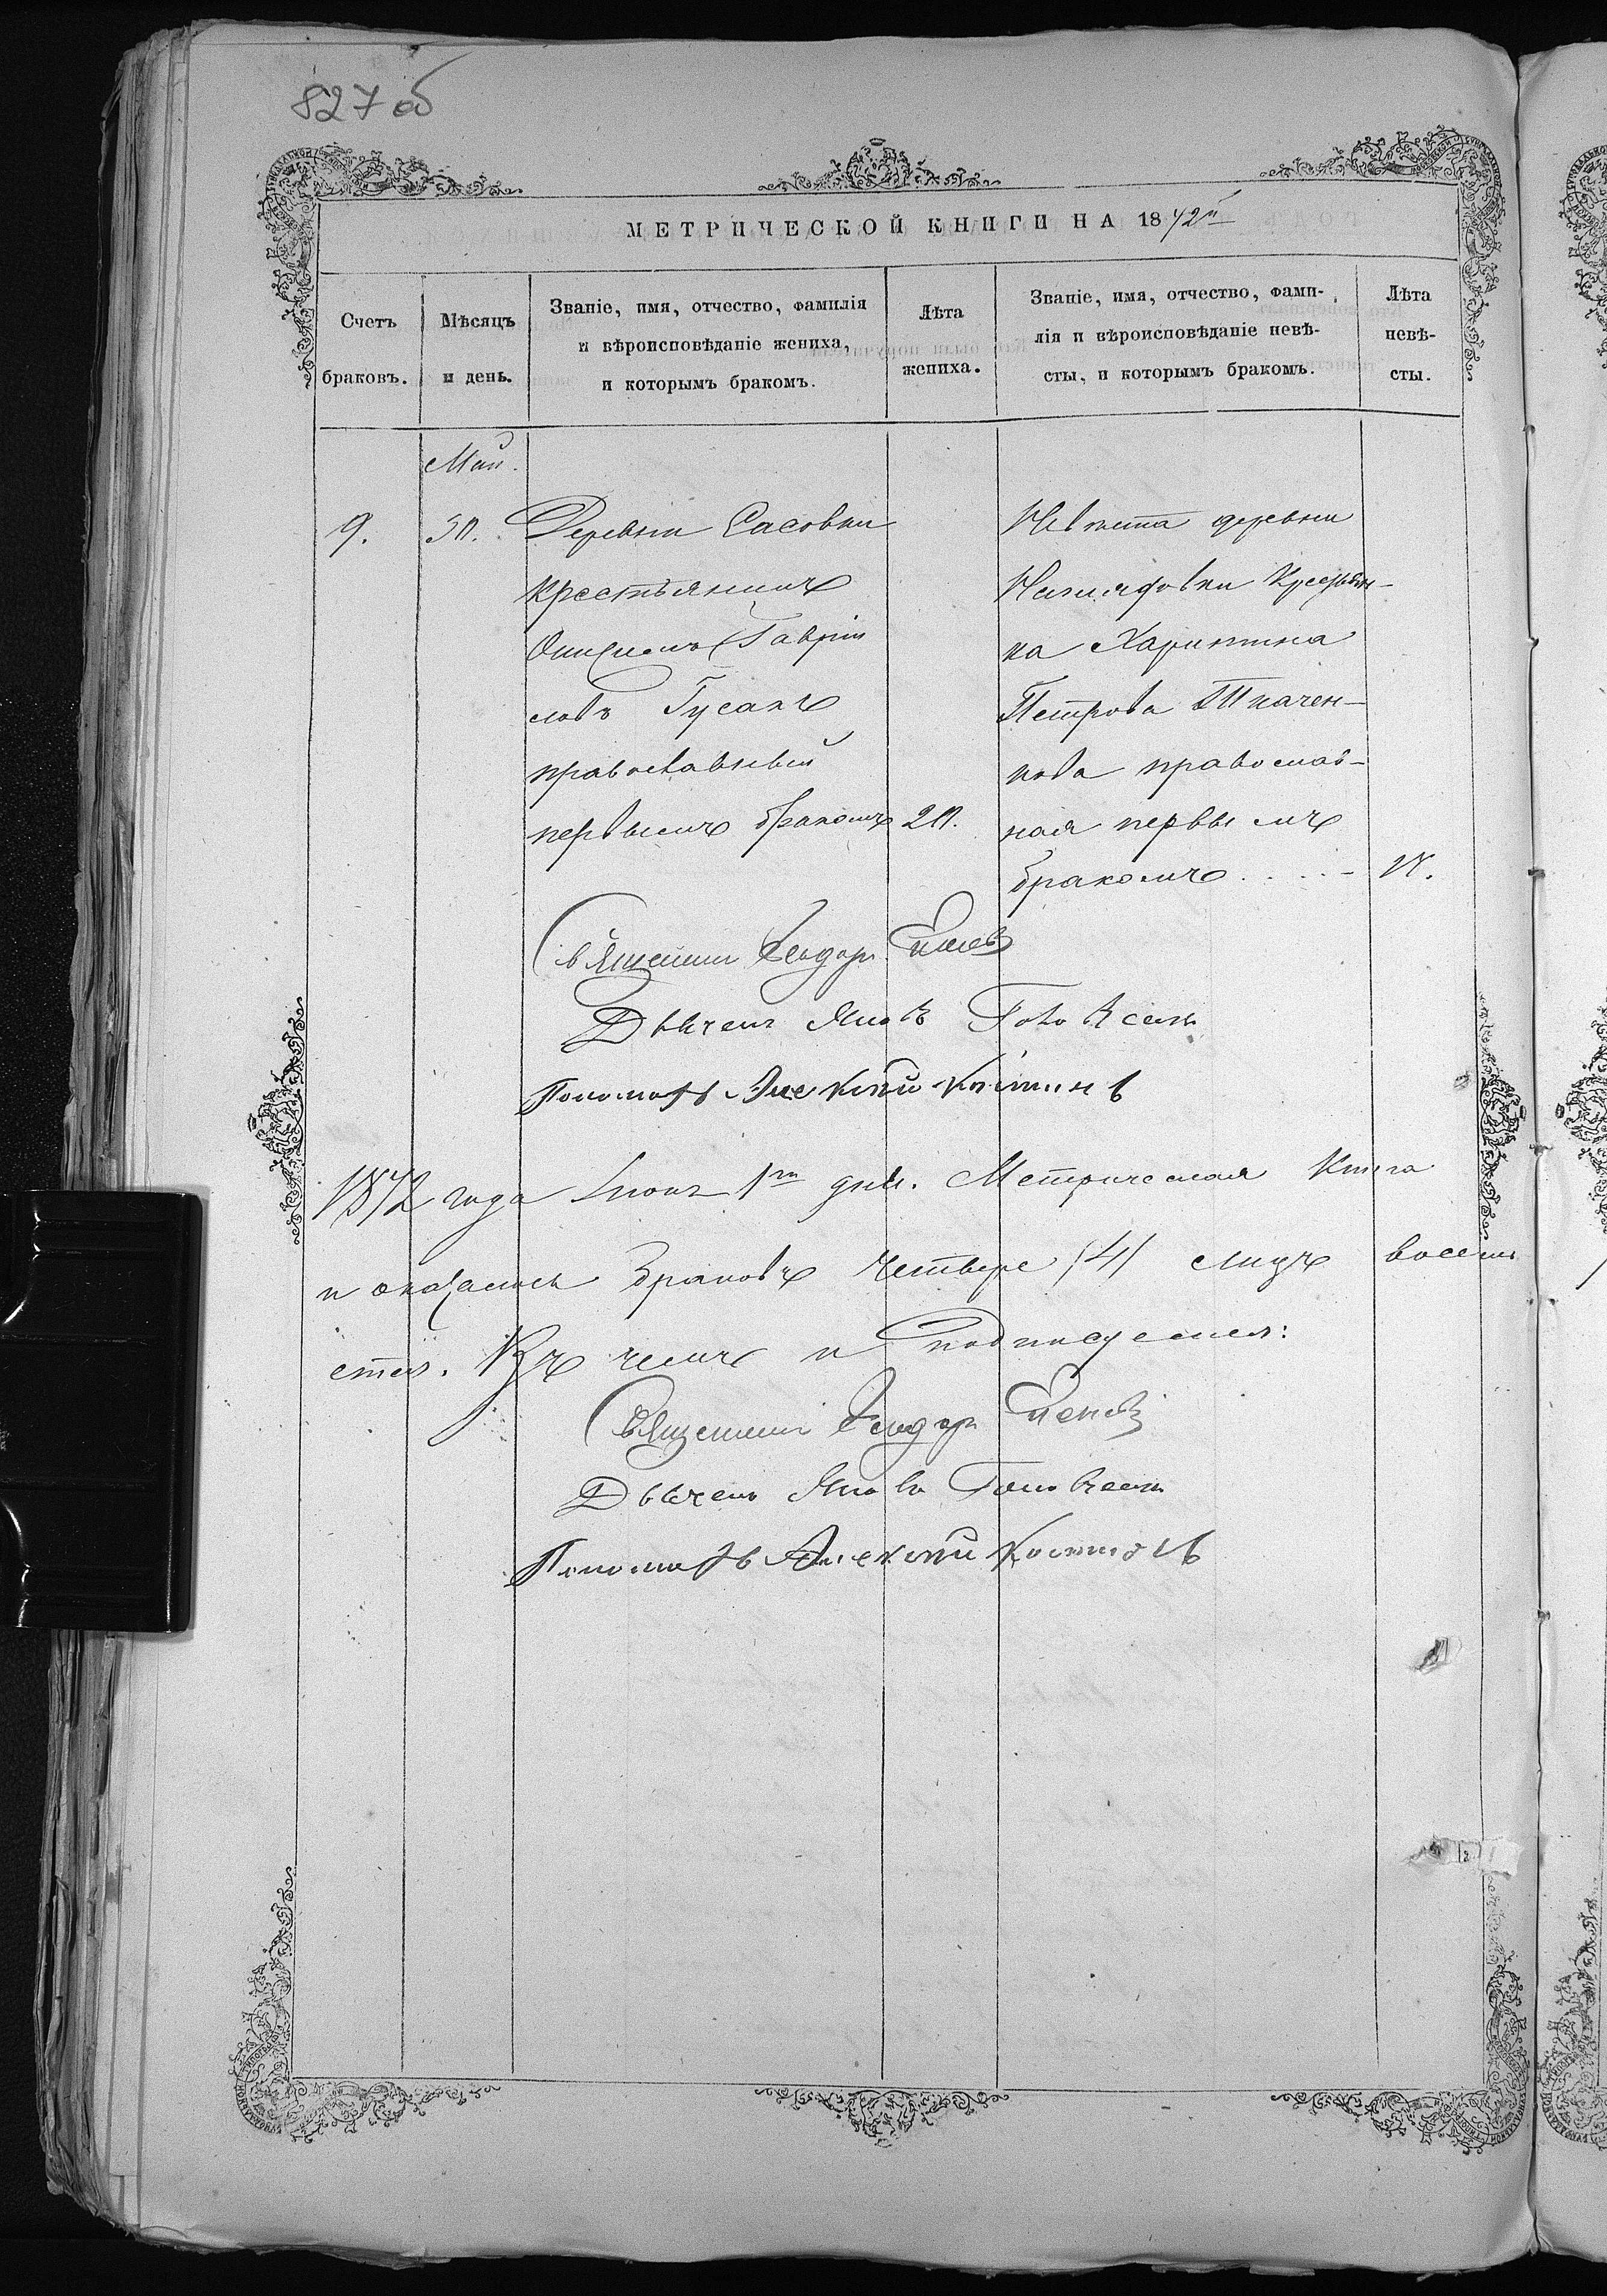 827 об
МЕТРИЧЕСКОЙ КНИГИ НА 1872й
Счетъ браковъ.
Мѣсяцъ и день.
Званіе, имя, отчество, фамилія
и вѣроисповѣданіе жениха,
и которымъ бракомъ.
Лѣта
жениха.
Званіе, имя, отчество, фами-
лія и вѣроисповѣданіе невѣ-
сты, и которымъ бракомъ.
Лѣта
невѣ-
сты.
Май.
9. 30.
Деревни Сасовки
крестьянинъ
Онисимъ Гавріи
ловъ Гусакъ
православный
первымъ бракомъ 20.
Невѣста деревни
Крестьян-
ка Харитина
Петрова Ткачен-
кова православ-
ная первымъ
бракомъ . . . . - 18.
Священникъ Ѳеодоръ
Дьячекъ Яковъ
Пономарь Алексѣй
1872 года Іюня 1го дня. Метрическая Книга
и оказалось Браковъ Четверо /4/ лицъ восемь
Въ чемъ и подписуемся:
Священникъ Ѳеодоръ
Дьячекъ Яковъ
Пономарь Алексѣй